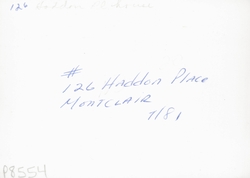 126
#
126 Haddon Place
Montclair
7/81
P8554